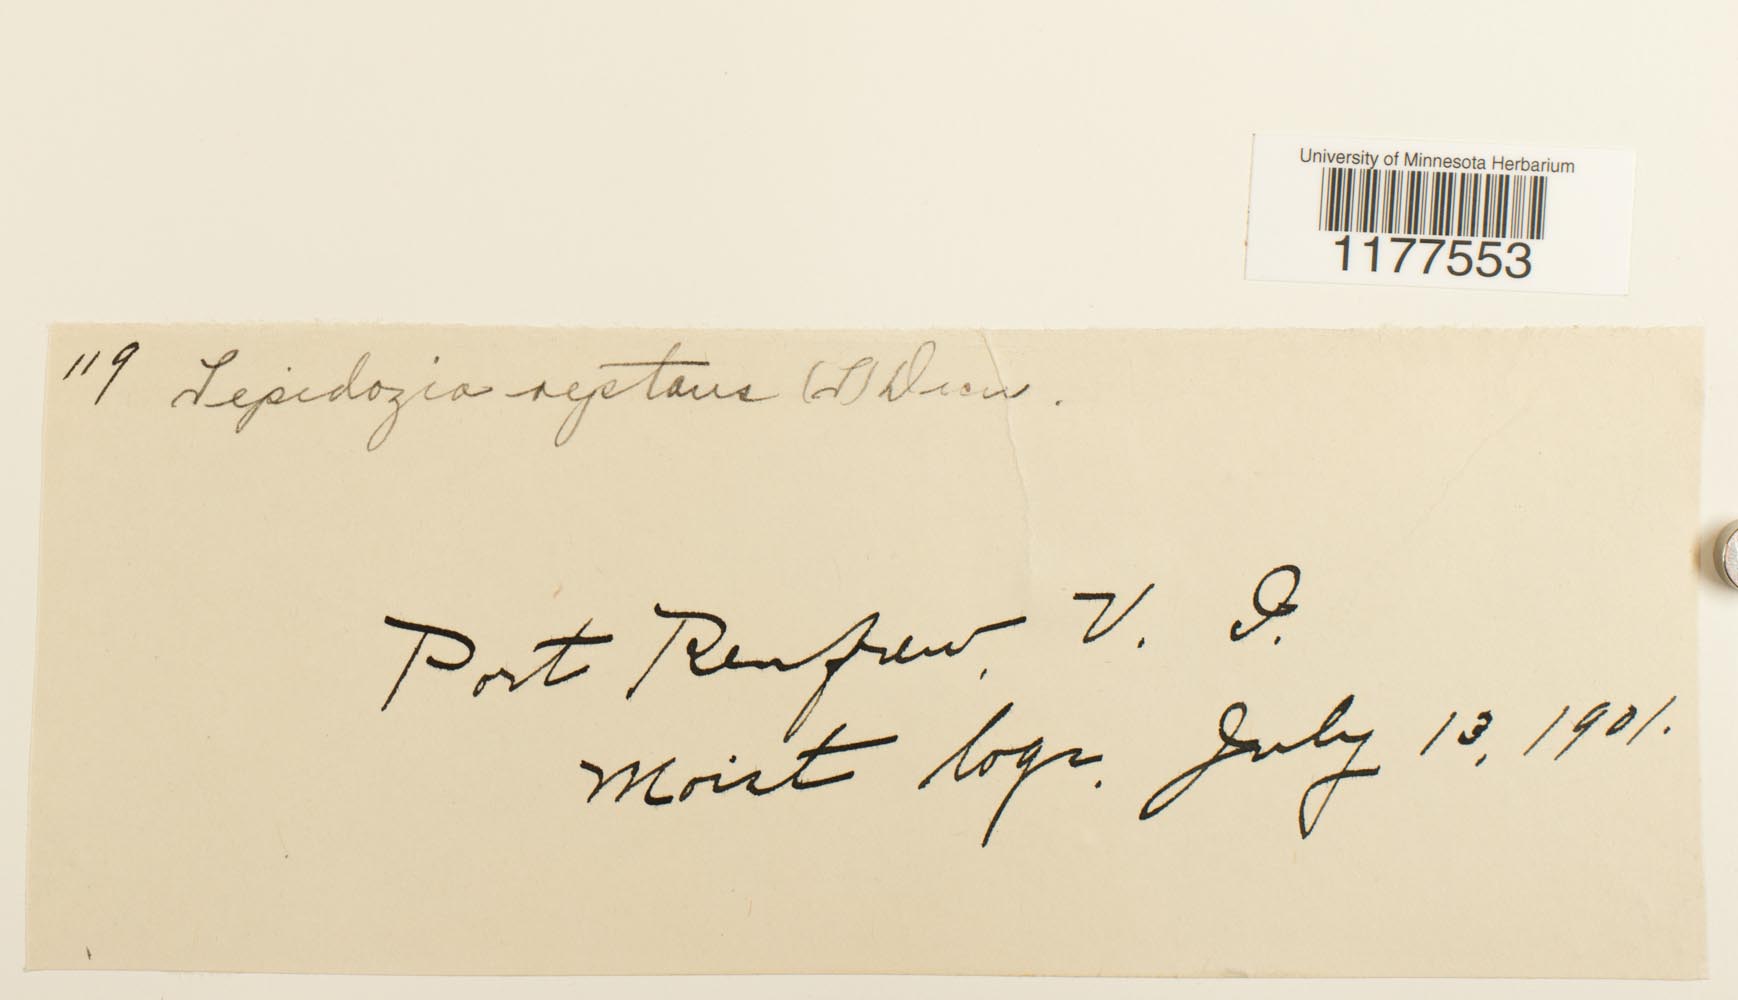 University of Minnesota Herbarium
1177553
119 Lepidozia reptans (L) Dum.
Port Renfrew, V. I.
Moist logs. July 13, 1901.